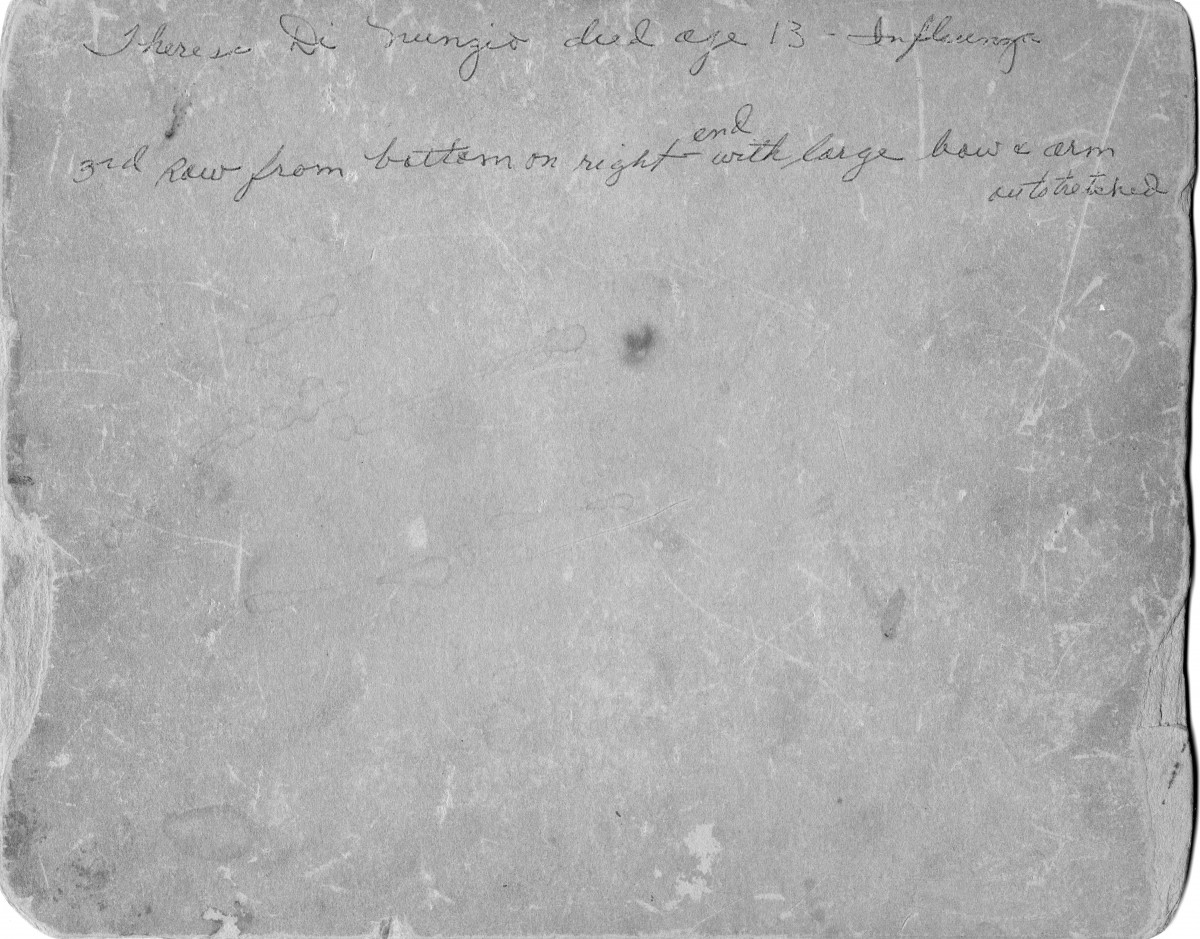 Theresa Di Nunzio died age 13 - Influenza
end
3rd Row from bottom on right with large bow & arm
outstretched